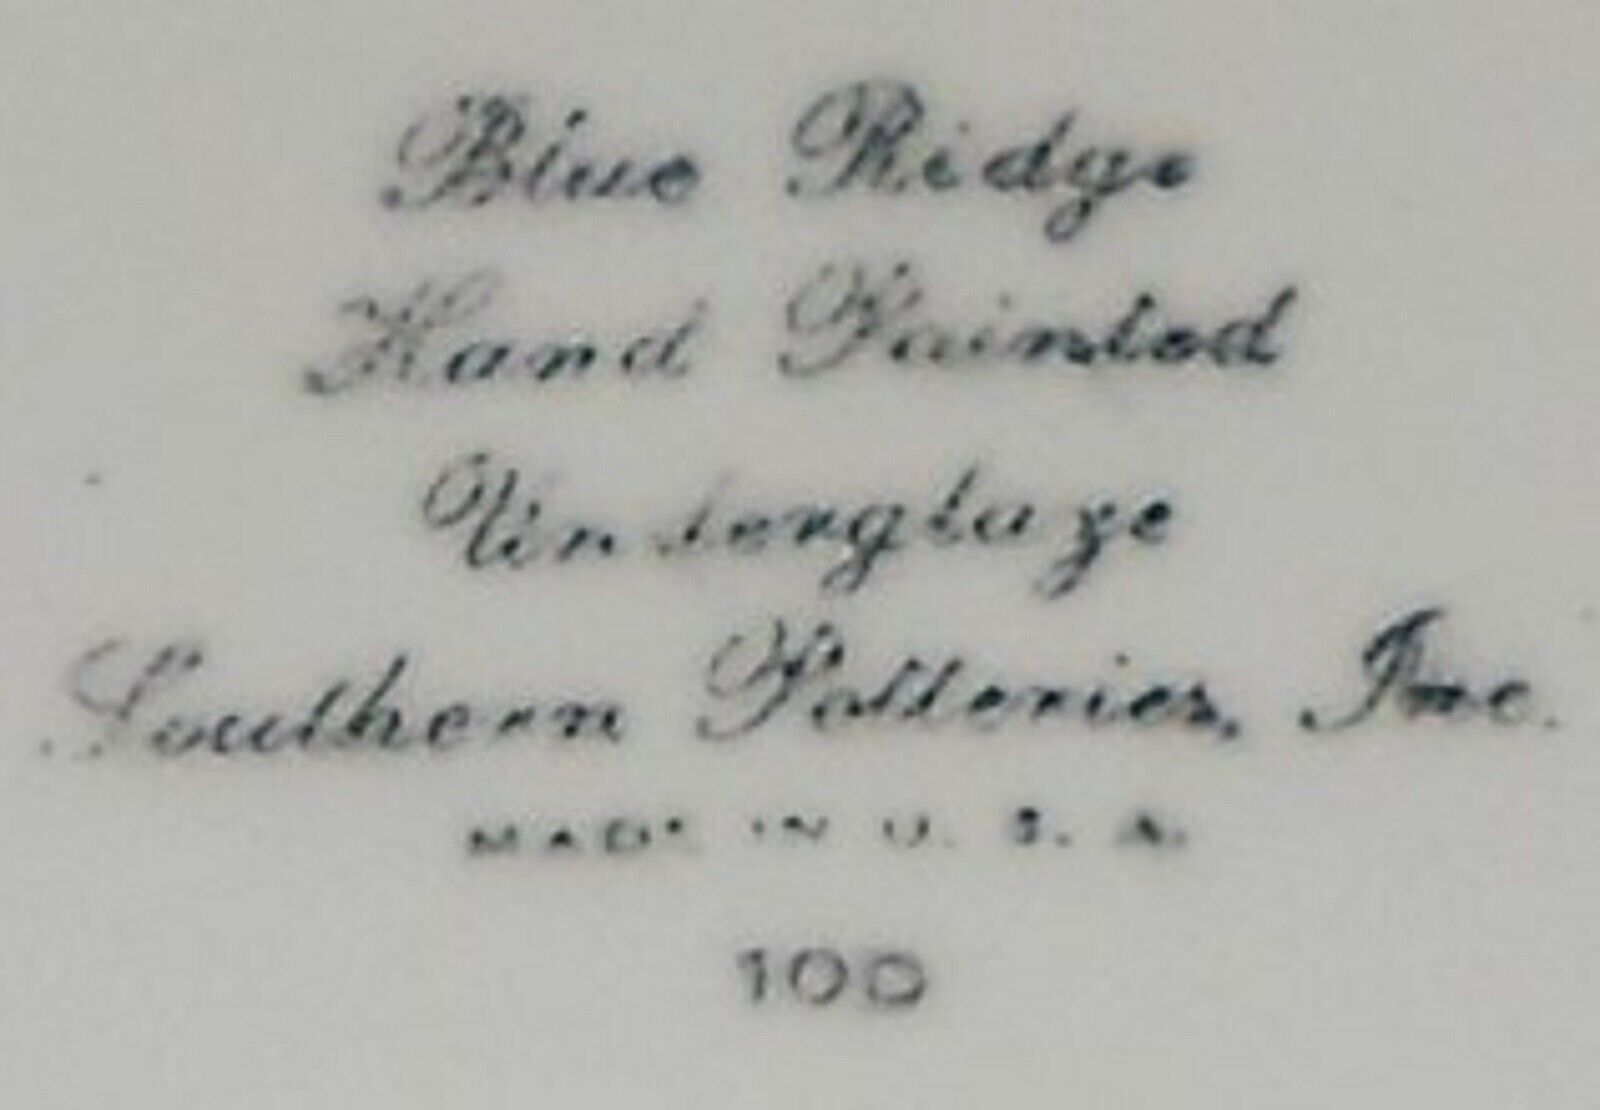 Blue Ridge
Hand Painted
Underglaze
Southern Potteries, Inc.
MADE IN U. S. A.
100